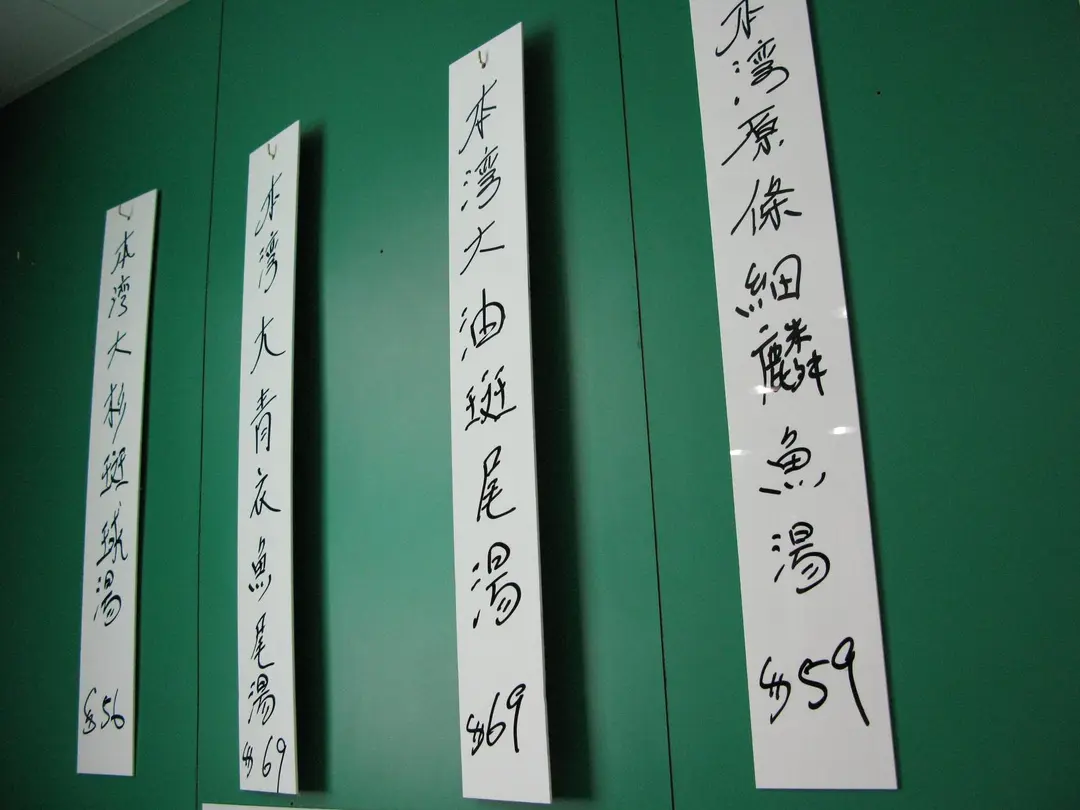 本湾原條細麟魚湯
$59
本湾大油斑尾湯
$69
本湾大青衣魚尾湯
$69
本湾大杉斑球湯
$56